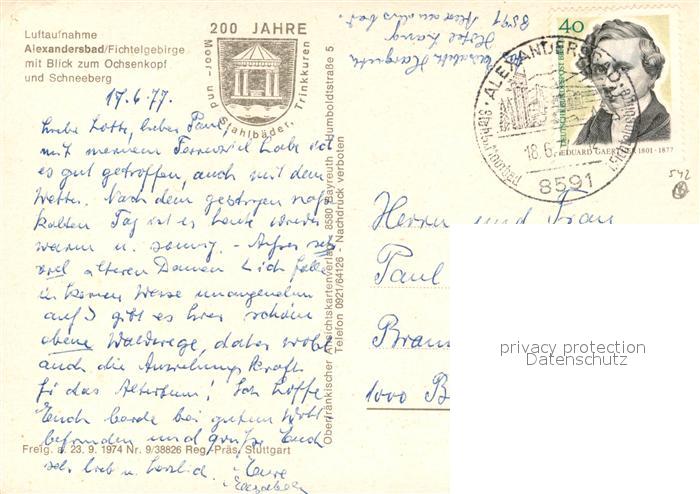 Luftaufnahme
Alexandersbad/Fichtelgebirge
mit Blick zum Ochsenkopf
und Schneeberg
200 JAHRE
Moor- und Stahlbäder, Trinkkuren
8591
Hotel
40
DEUTSCHE BUNDESPOST BERLIN
EDUARD GAERTNER 1801-1877
ALEXANDERSBAD
18.6.
8591
542
17.6.77.
Liebe Lotte, lieber Paul,
mit meinem Ferienziel habe ich
es gut getroffen, auch mit dem
Wetter. Nach dem gestrigen naß-
kalten Tag ist es heute wieder
warm u. sonnig. - Außer sehr
viel älteren Damen (ich falle
in keiner Weise unangenehm
auf) gibt es hier schöne
ebene Waldwege, daher wohl
auch die Anziehungskraft
für das Altertum! Ich hoffe
Euch beide bei gutem Wohl-
befinden und grüße Euch
sehr lieb u. herzlich. Eure
Freig. a. 23. 9. 1974 Nr. 9/38826 Reg.-Präs. Stuttgart
Oberfränkischer Ansichtskartenverlag 8580 Bayreuth Humboldtstraße 5
Telefon 0921/64126 - Nachdruck verboten
Herrn und Frau
Paul
1000 B
privacy protection
Datenschutz